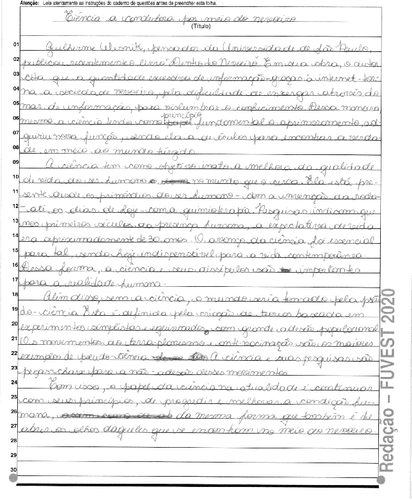 Atenção: Leia atentamente as instruções do caderno de questões antes de preencher esta folha.
Ciência a condutora por meio do nevoeiro
(Título)
01 Guilherme Wisnik, pensador da Universidade de São Paulo,
02 publicou recentemente o livro "Dentro do Nevoeiro". Em sua obra, o autor
03 cita que a quantidade excessiva de informação graças à internet tor-
04 na a sociedade nevoeiro, pela dificuldade de enxergar através do
05 mar de informações, para vislumbrar o conhecimento. Dessa maneira
06 mesmo a ciência tendo como princípio fundamental o aprimoramento, ad-
07 quiriu nova função, sendo ela a de óculos para encontrar a verda-
08 de em meio ao mundo
09 A ciência tem como objetivo inato a melhora da qualidade
10 de vida do ser humano no mundo que o cerca. Ela está pre-
11 sente desde os primórdios do ser humano - com a invenção da roda
12 - até os dias de hoje com a quimioterapia. Pesquisas indicam que
13 nos primeiros séculos da presença humana, a expectativa de vida
14 era aproximadamente de 30 anos. O avanço da ciência foi essencial
15 para tal, sendo hoje indispensável para a vida contemporânea.
16 Dessa forma, a ciência e seus discípulos são importantes
17 para a realidade humana.
18 Além disso, sem a ciência, o mundo seria tomado pela pseu-
19 do-ciência. Ela é definida pela criação de teorias baseada em
20 experimentos simplistas e equivocados, com grande adesão populacional.
21 Os movimentos da terra planismo e anti-vacinação são os maiores
22 exemplos de pseudo-ciência A ciência e suas pesquisas são
23 peças-chave para a não-adesão desses movimentos.
24 Com isso, o papel da ciência na atualidade é continuar
25 com seus princípios, de progredir e melhorar a condição hu-
26 mana, da mesma forma que também é de
27 abrir os olhos daqueles que se encontram no meio do nevoeiro.
28
29
30
Redação – FUVEST 2020